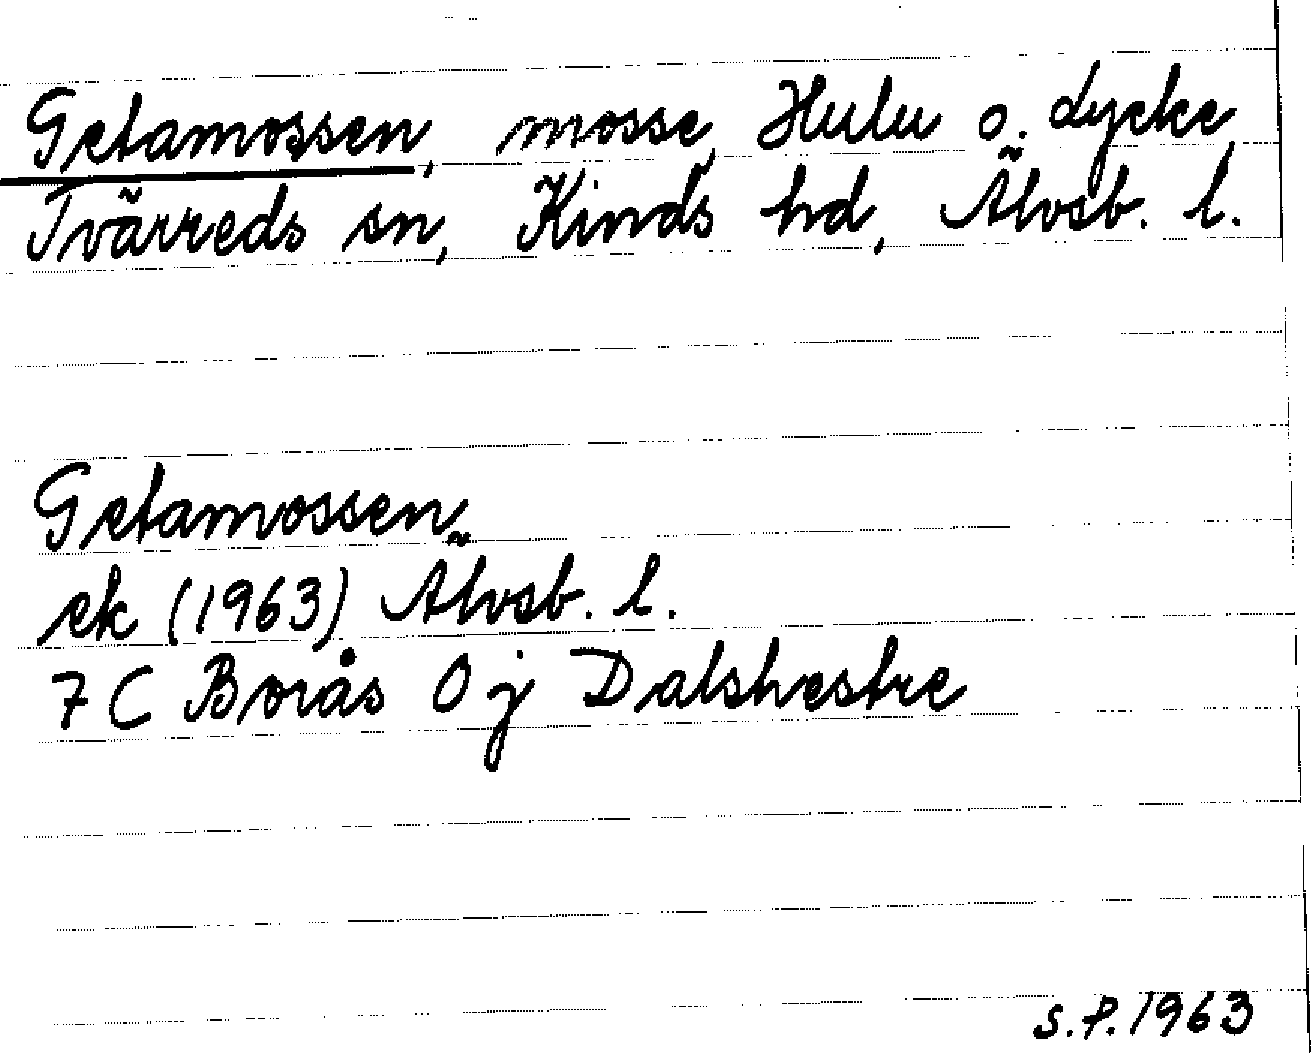 Getamossen, mosse, Hulu o. Lycke
Tvärreds sn, Kinds hd, Älvsb. l.
Getamossen,
ek (1963) Älvsb. l.
7 C Borås 0 j Dalshestre
S.P. 1963